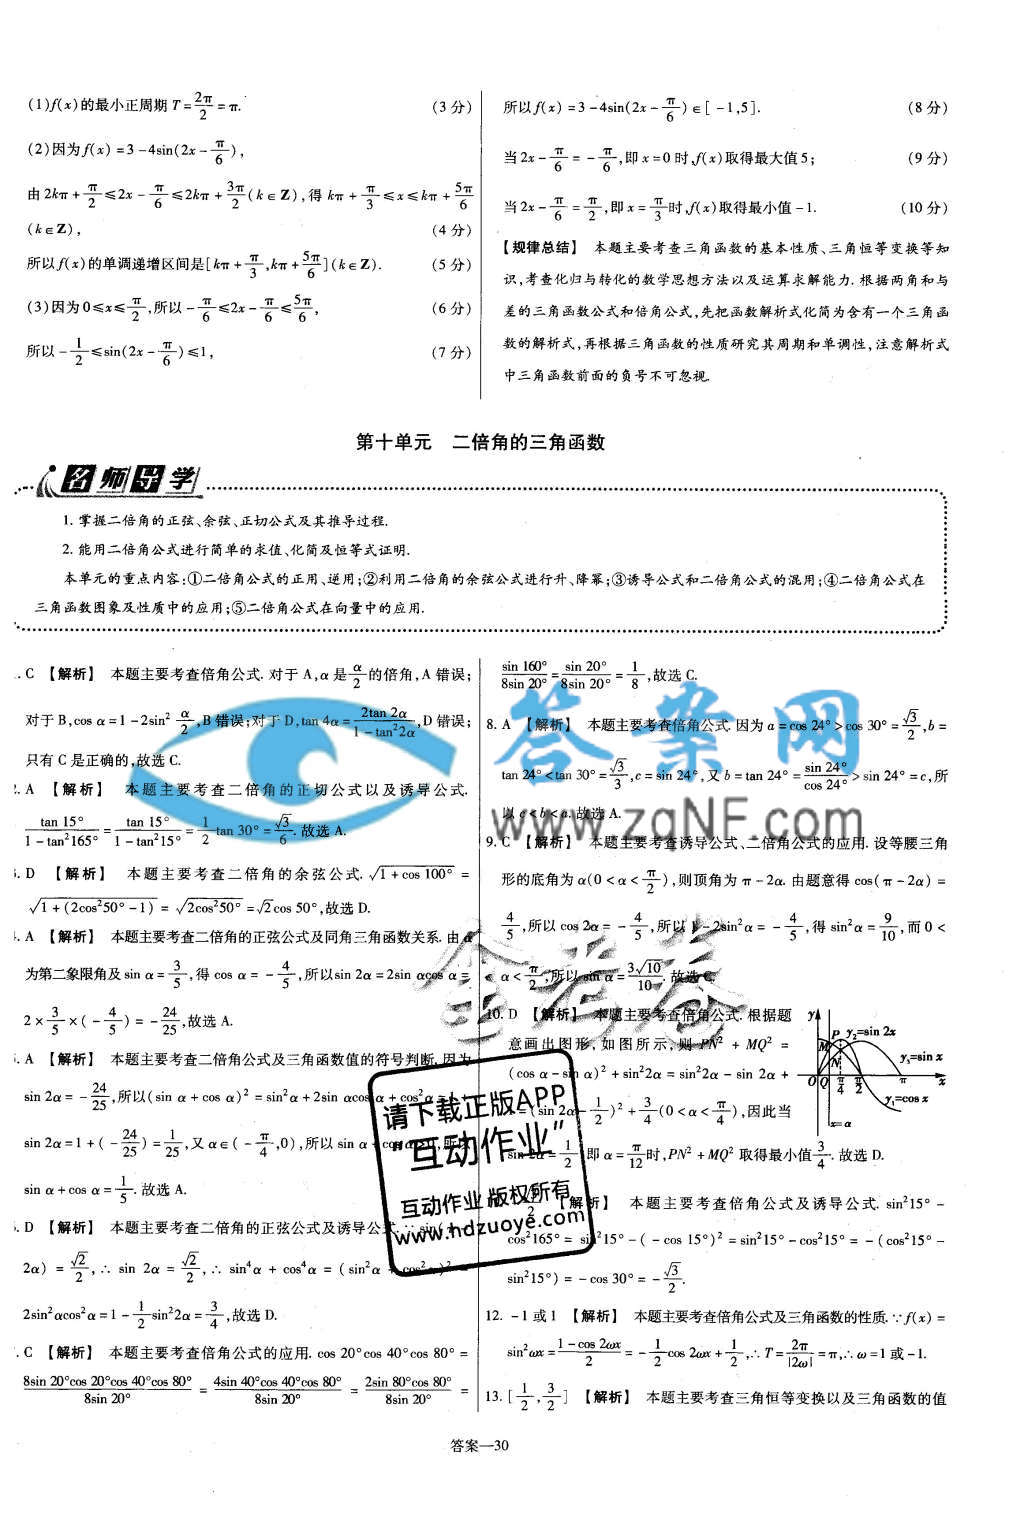 (1)f(x)的最小正周期 T=2π/2=π. (3分)
(2)因为f(x)=3-4sin(2x-π/6),
由 2kπ+π/2≤2x-π/6≤2kπ+3π/2(k∈Z),得 kπ+π/3≤x≤kπ+5π/6
(k∈Z), (4分)
所以f(x)的单调递增区间是[kπ+π/3,kπ+5π/6](k∈Z). (5分)
(3)因为0≤x≤π/2,所以-π/6≤2x-π/6≤5π/6, (6分)
所以-1/2≤sin(2x-π/6)≤1, (7分)
所以f(x)=3-4sin(2x-π/6)∈[-1,5]. (8分)
当2x-π/6=-π/6,即x=0时,f(x)取得最大值5; (9分)
当2x-π/6=π/2,即x=π/3时,f(x)取得最小值-1. (10分)
【规律总结】 本题主要考查三角函数的基本性质、三角恒等变换等知
识,考查化归与转化的数学思想方法以及运算求解能力.根据两角和与
差的三角函数公式和倍角公式,先把函数解析式化简为含有一个三角函
数的解析式,再根据三角函数的性质研究其周期和单调性,注意解析式
中三角函数前面的负号不可忽视.
第十单元 二倍角的三角函数
名师导学
1.掌握二倍角的正弦、余弦、正切公式及其推导过程.
2.能用二倍角公式进行简单的求值、化简及恒等式证明.
本单元的重点内容:①二倍角公式的正用、逆用;②利用二倍角的余弦公式进行升、降幂;③诱导公式和二倍角公式的混用;④二倍角公式在
三角函数图象及性质中的应用;⑤二倍角公式在向量中的应用.
. C 【解析】 本题主要考查倍角公式.对于A,α是α/2的倍角,A错误;
对于B,cos α=1-2sin²α/2,B错误;对于D,tan 4α=2tan 2α/(1-tan²2α),D错误;
只有C是正确的,故选C.
. A 【解析】 本题主要考查二倍角的正切公式以及诱导公式.
tan 15°/(1-tan²165°)=tan 15°/(1-tan²15°)=1/2 tan 30°=√3/6.故选A.
. D 【解析】 本题主要考查二倍角的余弦公式.√(1+cos 100°)=
√(1+(2cos²50°-1))=√(2cos²50°)=√2cos 50°,故选D.
. A 【解析】 本题主要考查二倍角的正弦公式及同角三角函数关系.由α
为第二象限角及sin α=3/5,得cos α=-4/5,所以sin 2α=2sin αcos α=
2×3/5×(-4/5)=-24/25,故选A.
. A 【解析】 本题主要考查二倍角公式及三角函数值的符号判断.因为
sin 2α=-24/25,所以(sin α+cos α)²=sin²α+2sin αcos α+cos²α=1+
sin 2α=1+(-24/25)=1/25,又α∈(-π/4,0),所以sin α+cos α>0,所以
sin α+cos α=1/5.故选A.
. D 【解析】 本题主要考查二倍角的正弦公式及诱导公式.∵sin(π-
2α)=√2/2,∴sin 2α=√2/2,∴sin⁴α+cos⁴α=(sin²α+cos²α)²-
2sin²αcos²α=1-1/2 sin²2α=3/4,故选D.
. C 【解析】 本题主要考查倍角公式的应用.cos 20°cos 40°cos 80°=
8sin 20°cos 20°cos 40°cos 80°/8sin 20°=4sin 40°cos 40°cos 80°/8sin 20°=2sin 80°cos 80°/8sin 20°=
sin 160°/8sin 20°=sin 20°/8sin 20°=1/8,故选C.
8. A 【解析】 本题主要考查倍角公式.因为a=cos 24°>cos 30°=√3/2,b=
tan 24°<tan 30°=√3/3,c=sin 24°,又b=tan 24°=sin 24°/cos 24°>sin 24°=c,所
以c<b<a.故选A.
9. C 【解析】 本题主要考查诱导公式、二倍角公式的应用.设等腰三角
形的底角为α(0<α<π/2),则顶角为π-2α.由题意得cos(π-2α)=
4/5,所以cos 2α=-4/5,所以1-2sin²α=-4/5,得sin²α=9/10,而0<
α<π/2,所以sin α=3√10/10.故选C.
10. D 【解析】 本题主要考查倍角公式.根据题
意画出图形,如图所示,则PN²+MQ²=
(cos α-sin α)²+sin²2α=sin²2α-sin 2α+
=(sin 2α-1/2)²+3/4(0<α<π/4),因此当
sin 2α=1/2,即α=π/12时,PN²+MQ²取得最小值3/4.故选D.
y P y₂=sin 2x
M N y₁=sin x
O Q π/4 π/2 π x
y₁=cos x
x=α
√3/2 【解析】 本题主要考查倍角公式及诱导公式.sin²15°-
cos²165°=sin²15°-(-cos 15°)²=sin²15°-cos²15°=-(cos²15°-
sin²15°)=-cos 30°=-√3/2.
12. -1或1 【解析】 本题主要考查倍角公式及三角函数的性质.∵f(x)=
sin²ωx=(1-cos 2ωx)/2=-1/2 cos 2ωx+1/2,∴T=2π/|2ω|=π,∴ω=1或-1.
13. [1/2,3/2] 【解析】 本题主要考查三角恒等变换以及三角函数的值
答案—30
答案网
www.zqNF.com
金考卷
请下载正版APP
“互动作业”
互动作业 版权所有
www.hdzuoye.com